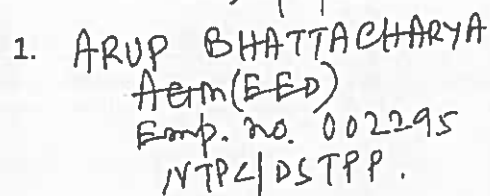 1. ARUP BHATTACHARYA
AGM(EED)
Emp. no. 002295
NTPC/DSTPP.